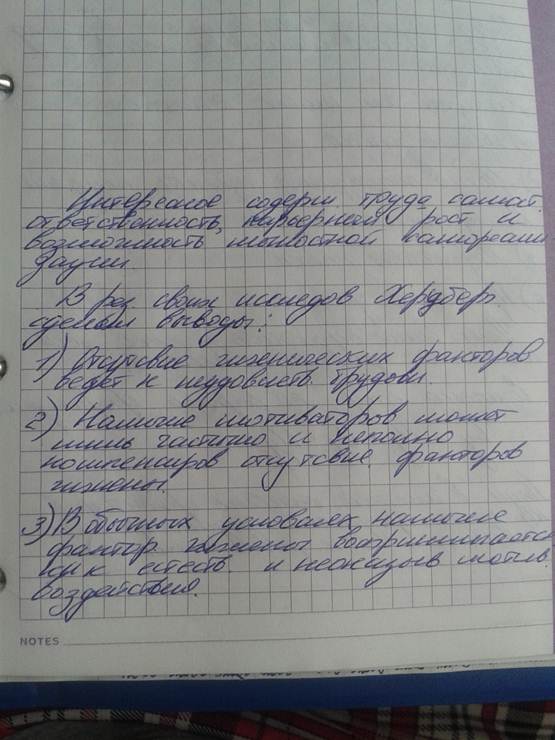 Интересное содерж труда самост.
ответственность, карьерный рост и
возможность личностной самореали
зации.
В рез своих исследов Херцберг
сделал выводы:
1) Отсутствие гигиенических факторов
ведет к неудовлетв. трудом.
2) Наличие мотиваторов может
лишь частично и неполно
компенсиров отсутствие факторов
гигиены.
3) В обычных условиях наличие
фактор гигиены воспринимается
как естеств. и неоказыв мотив.
воздействия.
NOTES